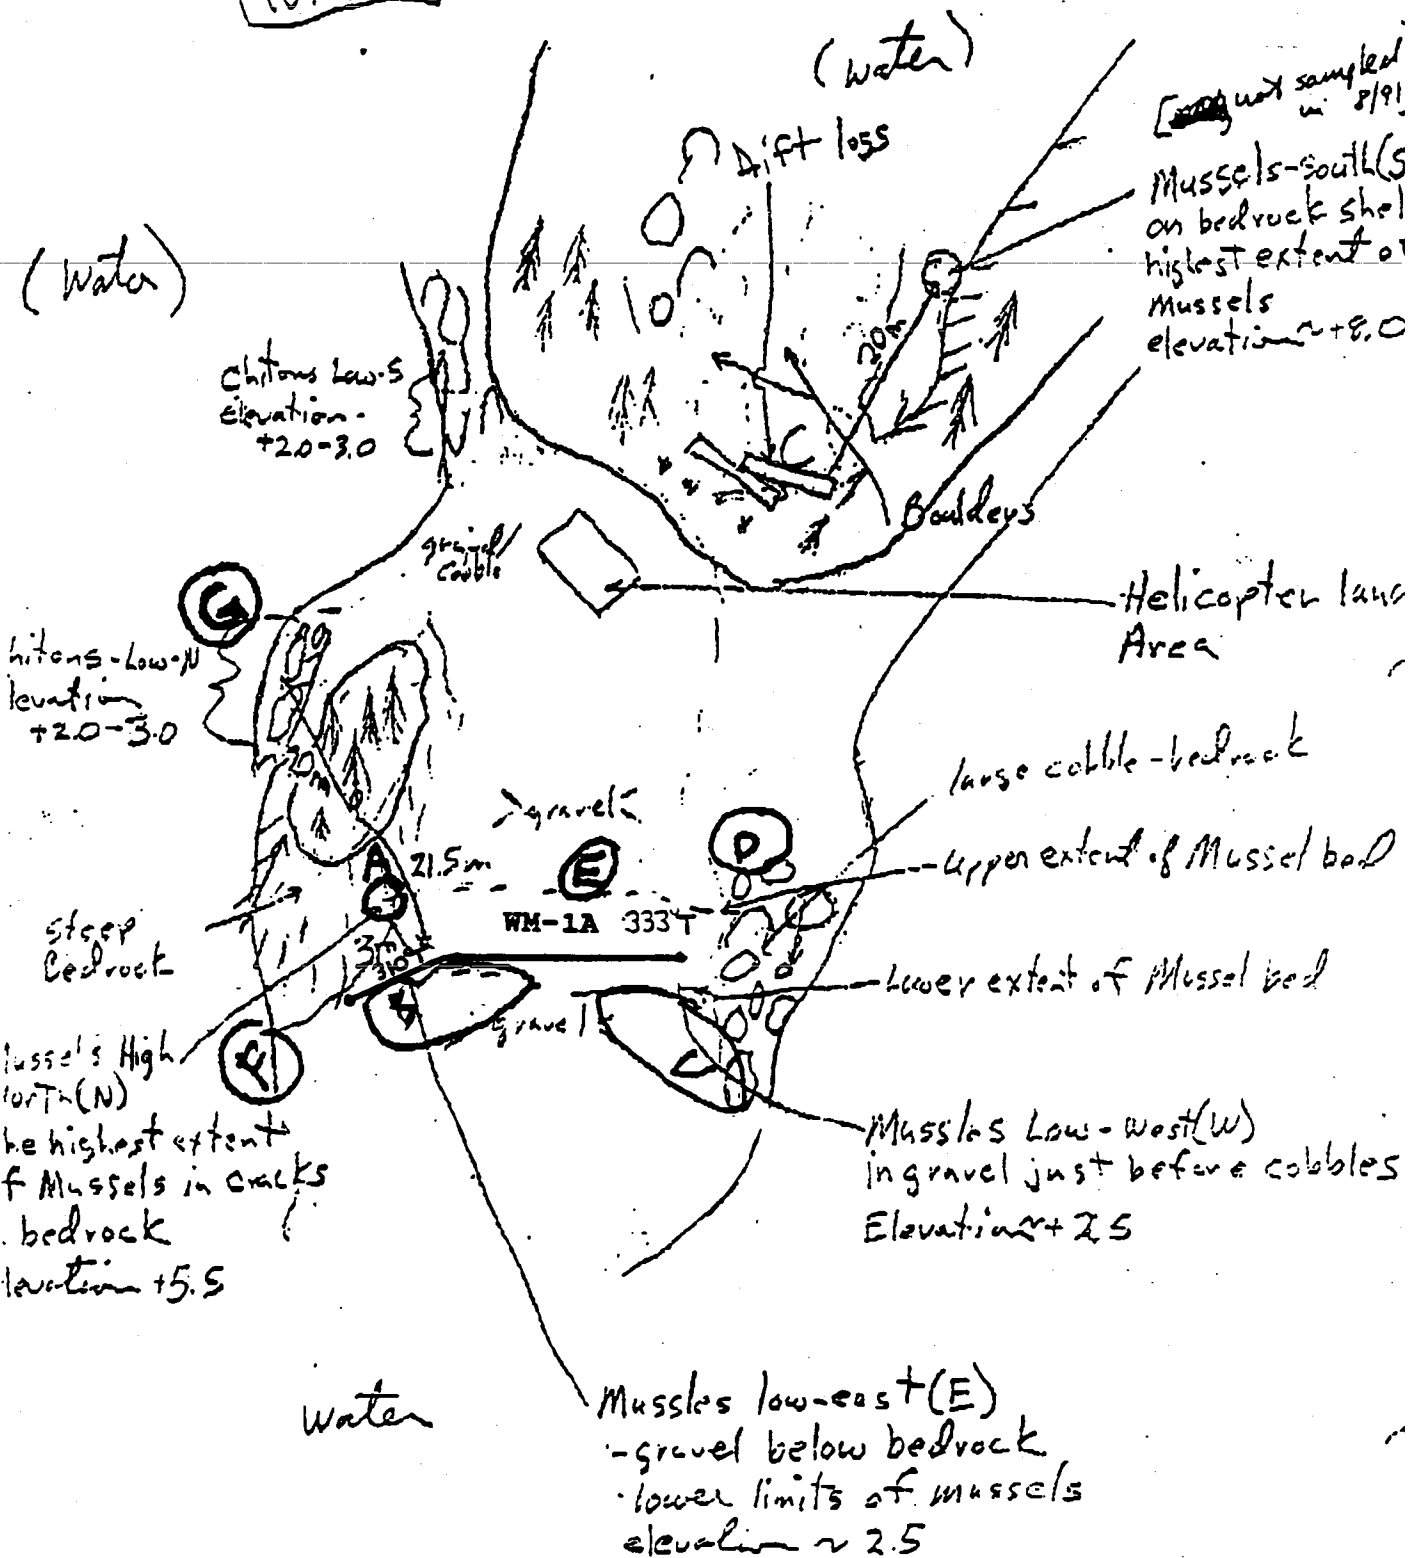 (water)
not sampled
in 8/91
Drift loss
Mussels-south(S
on bedrock shel
highest extent o
mussels
elevation ~ +8.0
(water)
20m
Chitons Low-S
Elevation -
+2.0-3.0
C
Boulders
gravel/
cobble
Helicopter land
Area
G
hitons-Low-N
levation
+2.0-3.0
20m
large cobble-bedrock
>gravel<
D
A 21.5m
E
upper extent of Mussel bed
WM-1A 333°T
steep
bedrock
3m
310°T
Lower extent of Mussel bed
B
gravel
C
F
ussels High
orth(N)
he highest extent
f Mussels in cracks
bedrock
levation +5.5
Mussles Low-west(W)
in gravel just before cobbles
Elevation ~ + 2.5
water
Mussles low-east(E)
-gravel below bedrock
·lower limits of mussels
elevation ~ 2.5